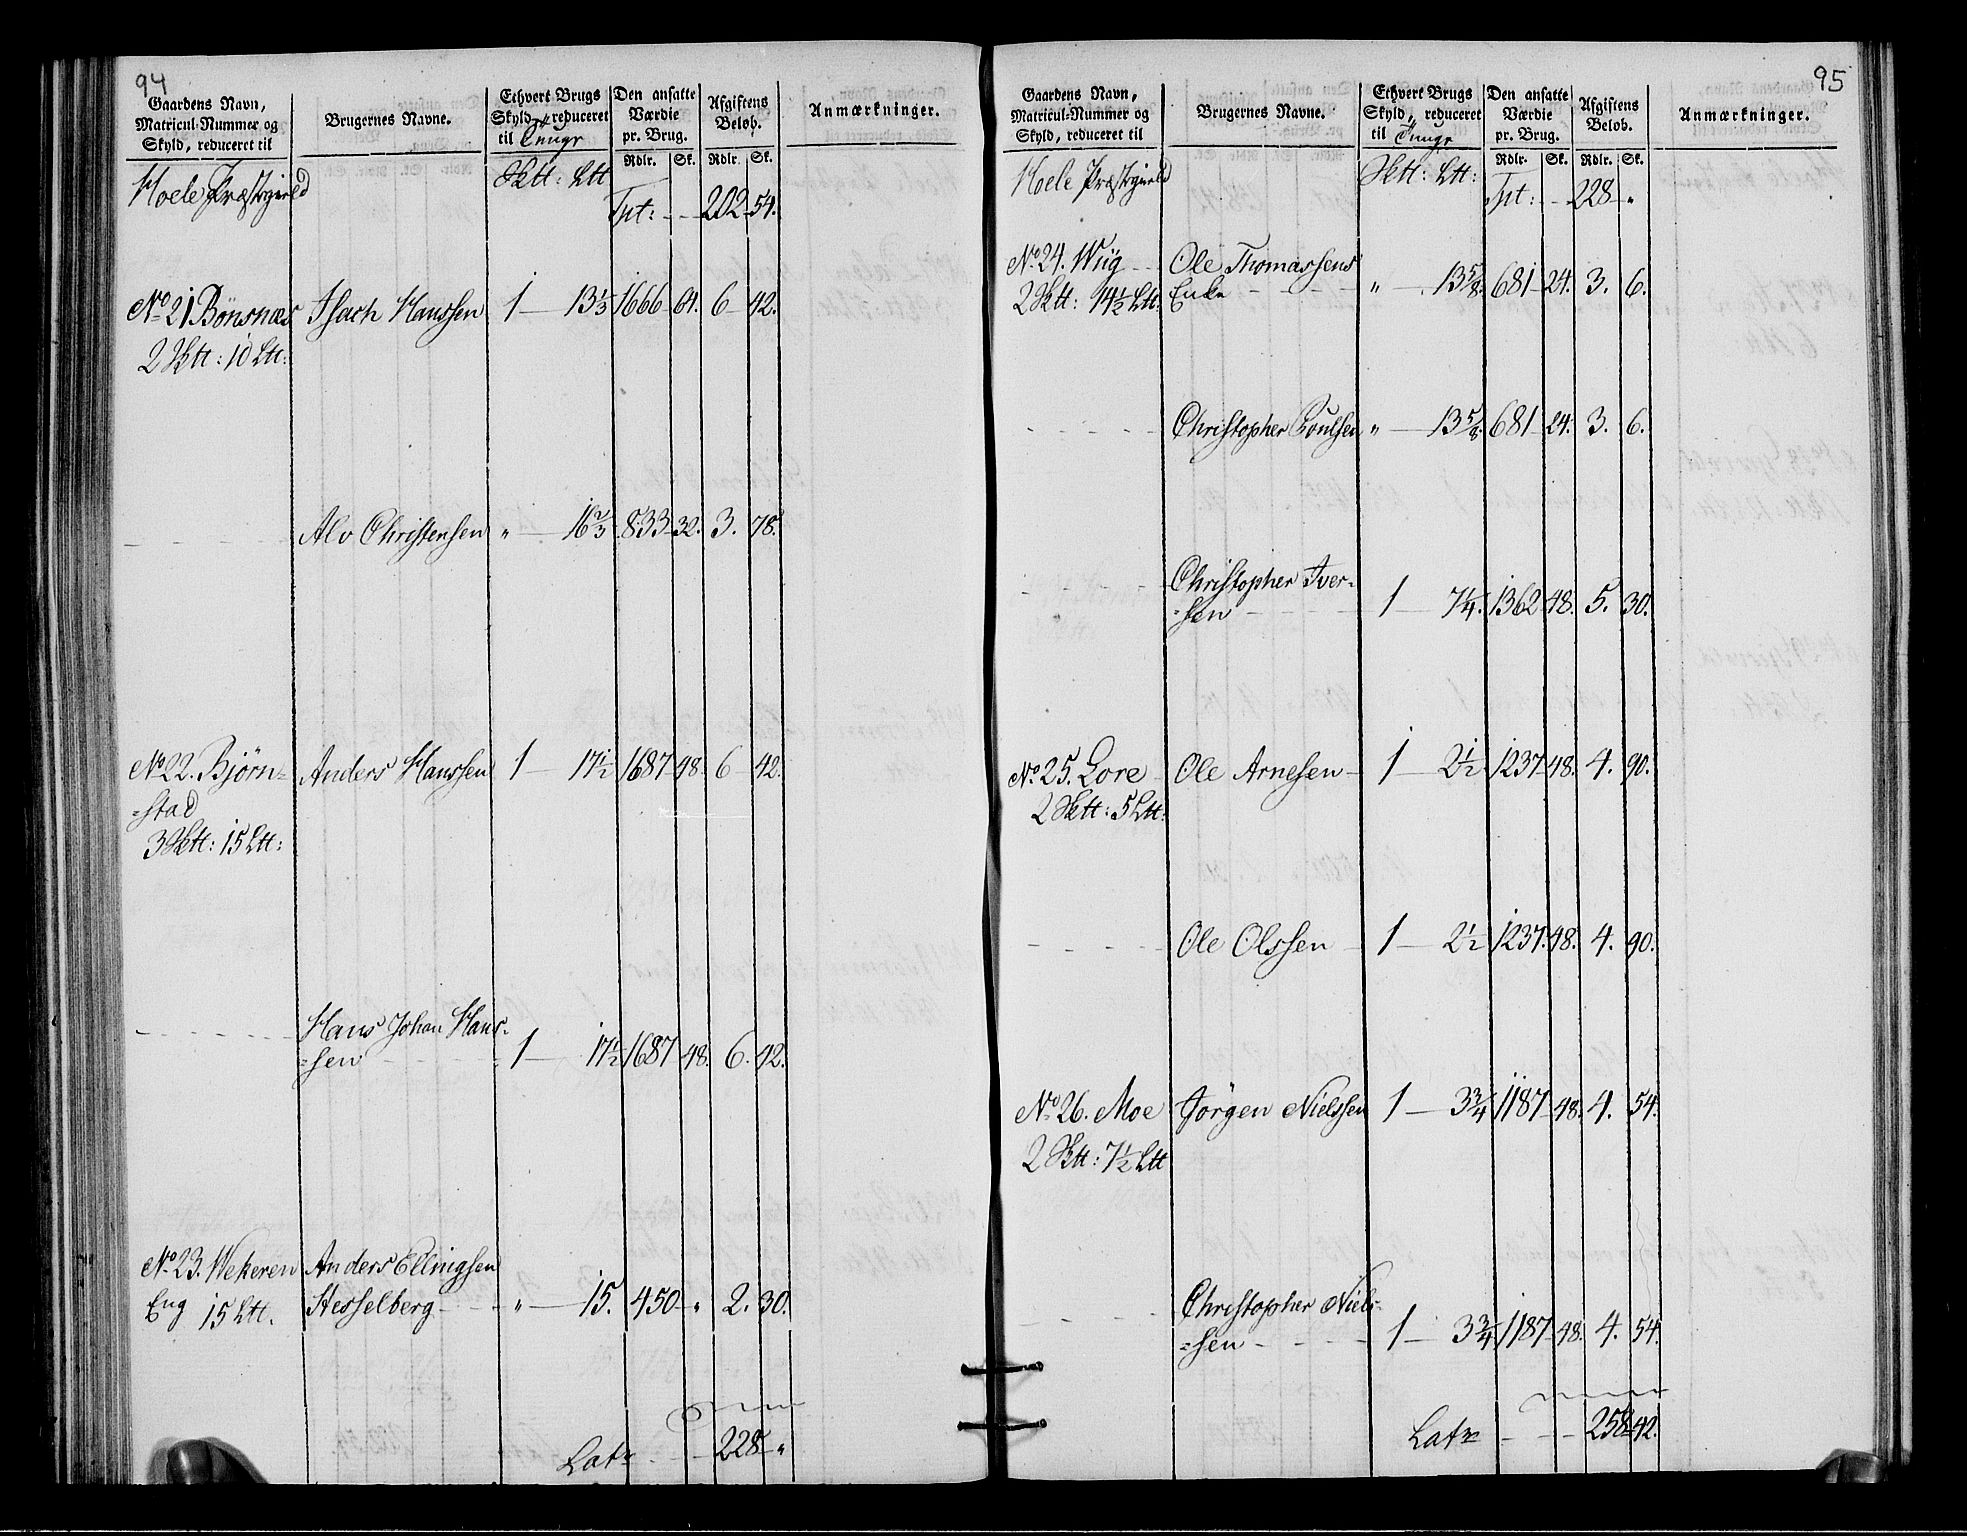 94
Gaardens Navn, Matricul-Nummer og Skyld, reduceret til
Brugernes Navne.
Ethvert Brugs Skyld, reduceret til Tunge
Den ansatte Værdie pr. Brug.
Afgiftens Beløb.
Anmærkninger.
Rdlr. Sk. Rdlr. Sk.
Hoele Præstegield Sktt: Ltt
Tpt: - - 202 54.
No 21 Bönsnæs Isach Hanssen 1 — 13 1/3 1666 64. 6 42.
2 Sktt: 10 Ltt:
Alv Christensen " — 16 2/3 833 32. 3. 78.
No 22. Bjørn= Anders Hanssen 1 — 17 1/2 1687 48. 6 42.
=stad
3 Sktt: 15 Ltt:
Hans Johan Hans=
=sen 1 — 17 1/2 1687 48. 6. 42.
No 23. Wekeren Anders Ellingsen
Eng 15 Ltt. Hesselberg - - " — 15. 450 " 2. 30.
Latr - - 228 "
95
Gaardens Navn, Matricul-Nummer og Skyld, reduceret til
Brugernes Navne.
Ethvert Brugs Skyld, reduceret til Tunge
Den ansatte Værdie pr. Brug.
Afgiftens Beløb.
Anmærkninger.
Rdlr. Sk. Rdlr. Sk.
Hoele Præstegield Sktt: Ltt:
Tpt: - - 228 "
No 24. Wiig Ole Thomassens
2 Sktt: 14 1/2 Ltt. Enke " — 13 5/8 681 24. 3. 6.
Christopher Poulsen " — 13 5/8 681 24. 3. 6.
Christopher Iver=
=sen 1 — 7 1/4. 1362 48. 5. 30.
No 25. Lore Ole Arnesen 1 — 2 1/2 1237 48. 4. 90.
2 Sktt: 5 Ltt:
Ole Olssen 1 — 2 1/2 1237. 48. 4. 90.
No 26. Moe Jörgen Nielssen 1 — 3 3/4 1187 48. 4. 54.
2 Sktt: 7 1/2 Ltt
Christopher Niels=
=sen 1 — 3 3/4 1187 48. 4. 54.
Latr - - 258 42.